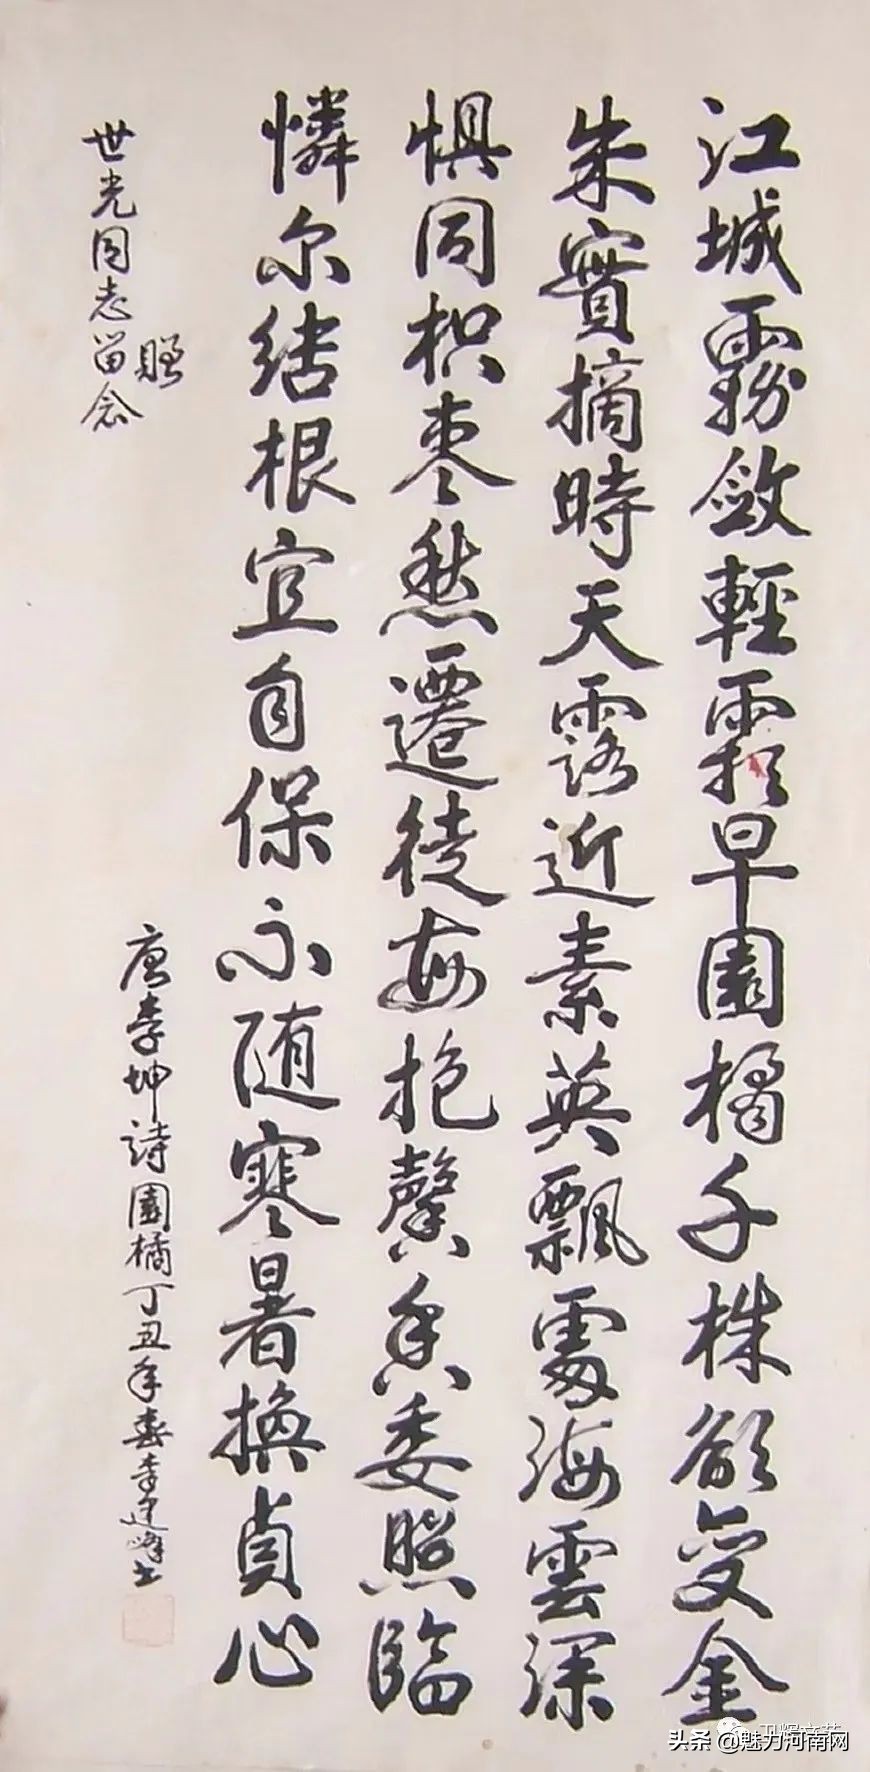 江城霧斂輕霜早園橘千株欲變金
朱實摘時天露近素英飄處海雲深
惧同枳棗愁遷徙每抱馨香委照臨
憐尔結根宜自保不随寒暑換貞心
世光同志留念
贈
唐李坤詩園橘丁丑年春李建峰书
头条 @魅力河南网